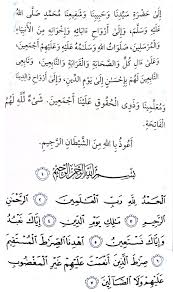 إِلَى حَضْرَةِ سَيِّدِنَا وَحَبِيبِنَا وَشَفِيعِنَا مُحَمَّدٍ صَلَّى اللهُ
عَلَيْهِ وَسَلَّمَ، وَإِلَى أَرْوَاحِ آبَائِهِ وَإِخْوَانِهِ مِنَ الْأَنْبِيَاءِ
وَالْمُرْسَلِينَ، صَلَوَاتُ اللهِ وَسَلَامُهُ عَلَيْهِ وَعَلَيْهِمْ أَجْمَعِينَ،
وَعَلَى آلِ كُلٍّ وَالصَّحَابَةِ وَالْقَرَابَةِ وَالتَّابِعِينَ، وَتَابِعِي
التَّابِعِينَ لَهُمْ بِإِحْسَانٍ إِلَى يَوْمِ الدِّينِ، وَإِلَى أَرْوَاحِ وَالِدِينَا
وَمُعَلِّمِينَا وَذَوِي الْحُقُوقِ عَلَيْنَا أَجْمَعِينَ. شَيْءٌ لِلَّهِ لَهُمُ
الْفَاتِحَةُ.
أَعُوذُ بِاللهِ مِنَ الشَّيْطَانِ الرَّجِيمِ.
بِسْمِ اللهِ الرَّحْمٰنِ الرَّحِيمِ ١
الْحَمْدُ لِلَّهِ رَبِّ الْعَالَمِينَ ٢ الرَّحْمٰنِ
الرَّحِيمِ ٣ مَالِكِ يَوْمِ الدِّينِ ٤ إِيَّاكَ نَعْبُدُ
وَإِيَّاكَ نَسْتَعِينُ ٥ اهْدِنَا الصِّرَاطَ الْمُسْتَقِيمَ
٦ صِرَاطَ الَّذِينَ أَنْعَمْتَ عَلَيْهِمْ غَيْرِ الْمَغْضُوبِ
عَلَيْهِمْ وَلَا الضَّالِّينَ ٧